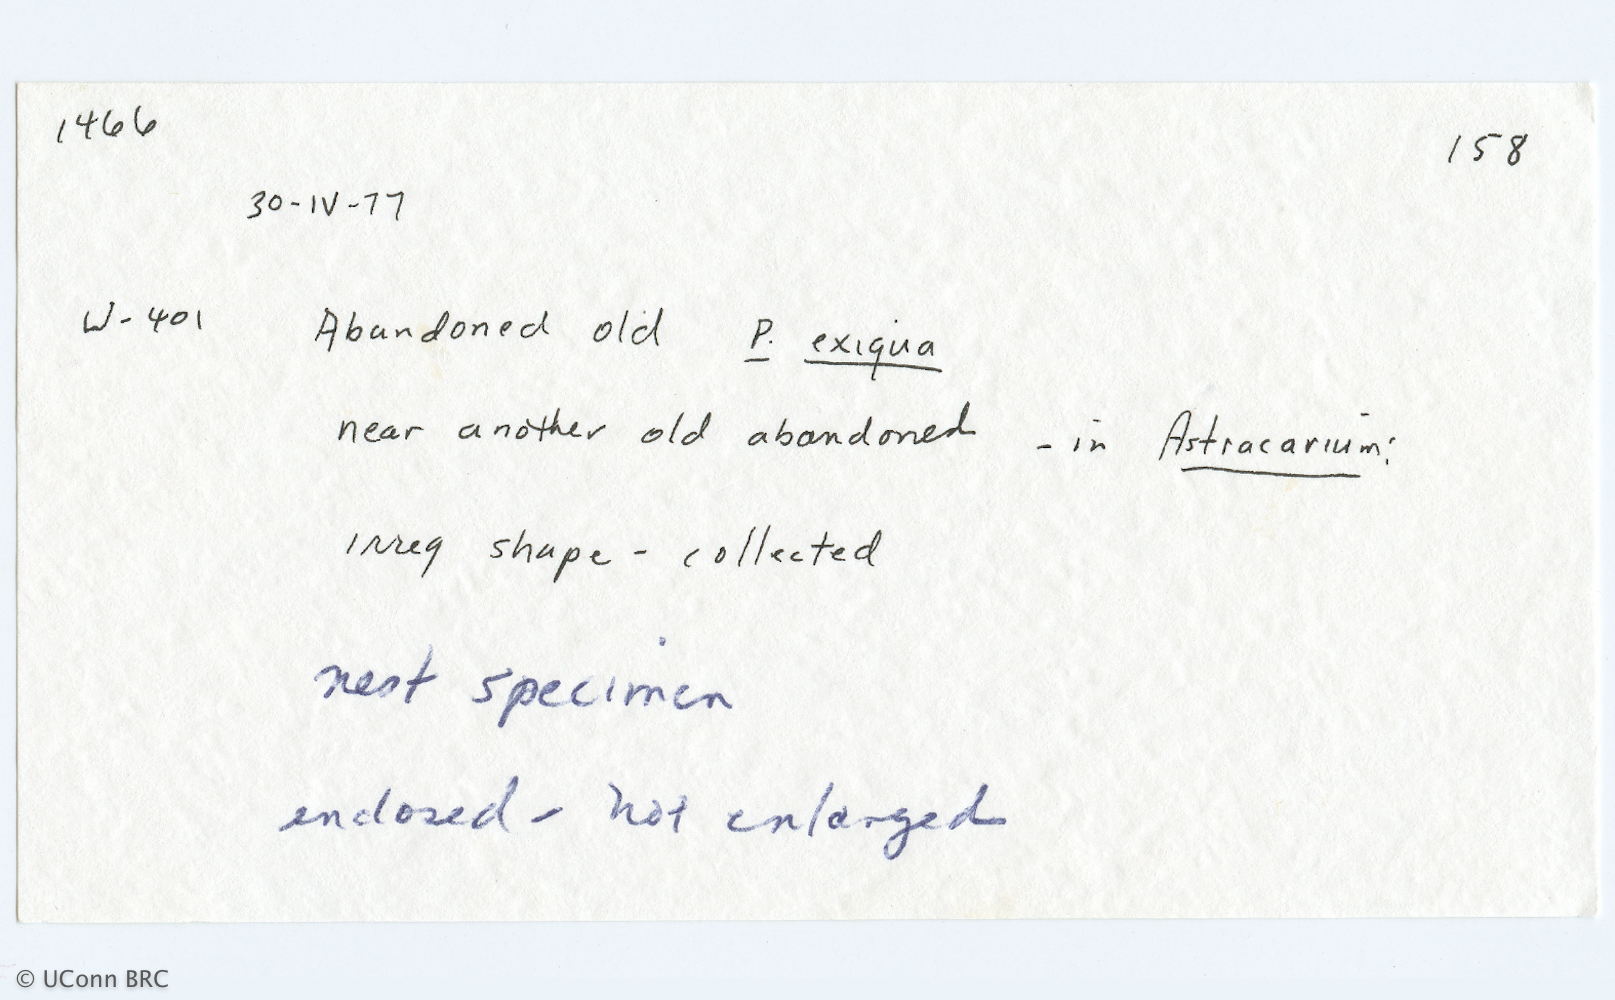 1466
158
30-IV-77
W-401 Abandoned old P. exiqua
near another old abandoned - in Astracarium:
irreg shape - collected
nest specimen
enclosed - not enlarged
© UConn BRC